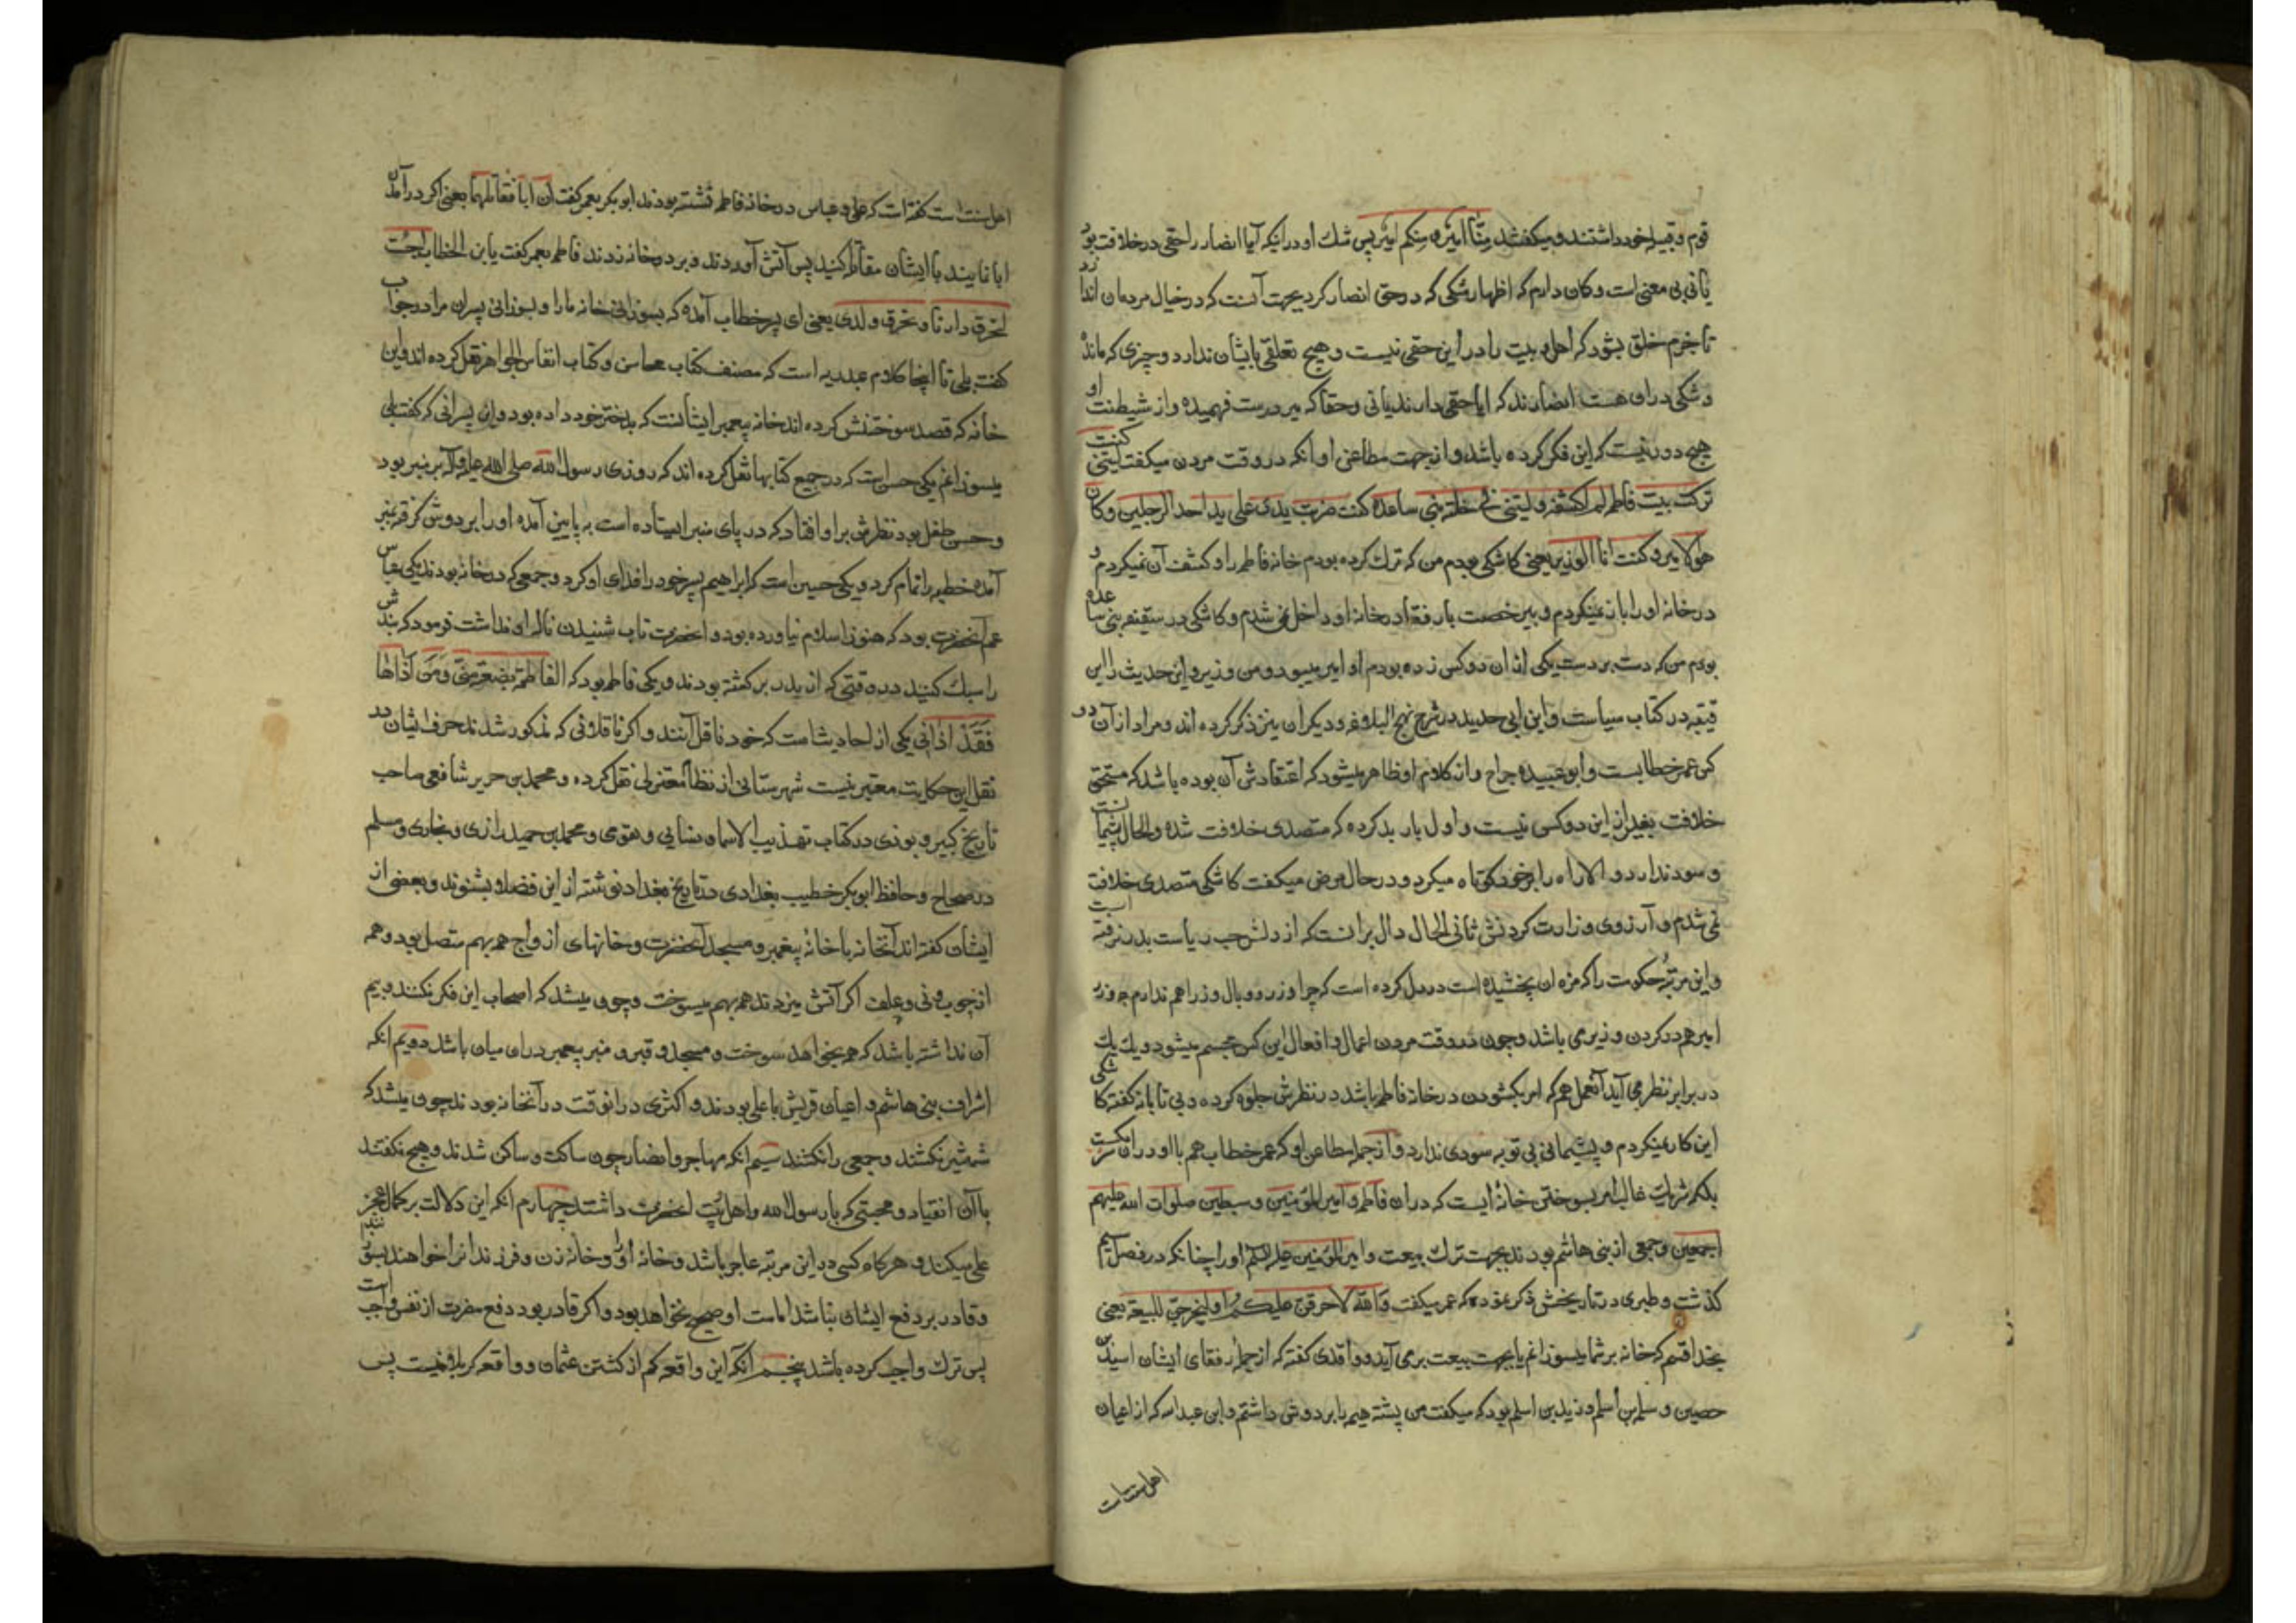 قوم و قبیله خود داشتند و میگفتند منّا امیر و منکم امیر پس شک او در اینکه آیا انصار را حقی در خلافت بود
یا نی بی معنی است و کان دارم که اظهار شکی که در حق انصار کرد بجهت آنست که در خیال مردمان اندازد
تا جزم خلق بشود که اهل بیت را در این حقی نیست و هیچ تعلقی بایشان ندارد و چیزی که مانده
و شکی در ان هست انصارند که ایا حقی دارند یا نی و حقا که میر درست فهمیده و از شیطنت او
هیچ دور نیست که این فکر کرده باشد و از جهت مطاعن او انکه در وقت مردن میکفت لیتنی کنت
ترکت بیت فاطمه لم اکشفه و لیتنی فی ظله بنی ساعده کنت ضربت یدی علی ید احد الرجلین و کان
هو الامیر و کنت انا الوزیر یعنی کاشکی بودم من که ترک کرده بودم خانه فاطمه را و کشف آن نمیکردم و
در خانه او را باز نمیکردم و بیرخصت بار فته در خانه او داخل نمی شدم و کاشکی در سقیفه بنی ساعده
بودم من که دست بر دست یکی از ان دو کس زده بودم او امیر میبود و من وزیر و این حدیث را ابن
قتیبه در کتاب سیاست و ابن ابی حدید در شرح نهج البلاغه و دیکران نیز ذکر کرده اند و مراد از آن دو
کس عمر خطابست و ابو عبیده جراح و از کلام او ظاهر میشود که اعتقادش آن بوده باشد که مستحق
خلافت بغیر از این دو کس نیست و اول بار بد کرده که متصدی خلافت شده و الحال پشیمانست
و سود ندارد و الا راه را بر خود کوتاه میکرد و در حال مرض میکفت کاشکی متصدی خلافت
نمی شدم و آرزوی وزارت کردنش ثانی الحال دال بر انست که از دلش حب ریاست بدر نرفته است
و این مرتبه حکومت را که مزه ان بچشیده است در دل کرده است که چرا وزر و وبال وزرا هم ندارم چه وزر
امیر هم در کردن وزیر می باشد و چون در وقت مردن اعمال و افعال این کس مجسم میشود و یک یک
در برابر نظر می آید آنعمل هم که امر بکشودن در خانه فاطمه باشد در نظرش جلوه کرده و بی تابانه کفته کاشکی
این کار نمیکردم و پشیمانی بی توبه سودی ندارد و از جمله مطاعن او که عمر خطاب هم با او در ان شریکست
بلکه شریک غالب امر بسوختن خانۀ ایست که در ان فاطمه و امیر المؤمنین و سبطین صلوات الله علیهم
اجمعین و جمعی از بنی هاشم بودند بجهت ترک بیعت و امیر المؤمنین علیه السلم او را چنانکه در فصل
کذشت و طبری در تاریخش ذکر نموده که عمر میکفت والله لاحرقن علیکم او لتخرجن للبیعة یعنی
بخدا قسم که خانه بر شما میسوزانم یا بجهت بیعت بر می آید و واقدی کفته که از جمله رفقای ایشان اسید بن
حصین و سلمة بن اسلم و زید بن اسلم بود که میکفت من پشته هیمه با بر دوش داشتم و ابن عبدربه که از اعیان
اهل سنت است
اهل سنت است کفته است که علی و عباس در خانه فاطمه نشسته بودند ابو بکر بعمر کفت ان ابیا فقاتلهما یعنی اکر در آمدن
ابا نمایند با ایشان مقاتله کنید پس آتش آوردند و بر در خانه زدند فاطمه بعمر کفت یابن الخطاب اجئت
لتحرق دارنا و تحرق ولدی یعنی ای پسر خطاب آمدۀ که بسوزانی خانه ما را و بسوزانی پسران مرا در جواب
کفت بلی تا اینجا کلام عبدربه است که مصنف کتاب محاسن و کتاب انفاس الجواهر نقل کرده اند و این
خانه که قصد سوختنش کرده اند خانه پیغمبر ایشانست که بدختر خود داده بود و ان پسرانی که کفت بلی
میسوزانم یکی حسن است که در جمیع کتابها نقل کرده اند که روزی رسول الله صلی الله علیه و آله بر منبر بود
و حسن طفل بود نظرش بر او افتاد که در پای منبر ایستاده است به پایین آمده او را بر دوش کرفته بمنبر
آمده خطبه را تمام کرد و یکی حسین است که ابراهیم پسر خود را فدای او کرد و جمعی که در خانه بودند یکی عباس
عم آنحضرت بود که هنوز اسلام نیاورده بود و انحضرت تاب شنیدن ناله او نداشت فرمود که بندش
را سبک کنید در وقتی که از بدر بر کشته بودند و یکی فاطمه بود که الفاطمة بضعة منی و من آذاها
فقد آذانی یکی از احادیث است که خود ناقل آنند و اکر ناقلانی که مذکور شدند حرف ایشان در
نقل این حکایت معتبر نیست شهرستانی از نظام معتزلی نقل کرده و محمد بن جریر شافعی صاحب
تاریخ کبیر و نوذی در کتاب تهذیب الاسما و نسایی و محمد بن حمید رازی و بخاری و مسلم
در صحاح و حافظ ابو بکر خطیب بغدادی در تاریخ بغداد نوشته از این فضلا بشنوند و بعضی از
ایشان کفته اند آنخانه با خانه پیغمبر و مسجد آنحضرت و خانهای ازواج همه بهم متصل بود و همه
از چوب و نی و علف اکر آتش میزدند همه بهم میسوخت و چون میشد که اصحاب این فکر نکنند و بیم
آن نداشته باشد که همه بخواهد سوخت و مسجد و قبر و منبر پیغمبر در ان میان باشد دویم انکه
اشراف بنی هاشم و اعیان قریش با علی بودند و اکثری در انوقت در آنخانه بودند چون میشد که
شمشیر نکشند و جمعی را نکشند سیم انکه مهاجر و انصار چون ساکت و ساکن شدند و هیچ نکفتند
با آن انقیاد و محبتی که با رسول الله و اهل بیت انحضرت داشتند چهارم انکه این دلالت بر کمال عجز
علی میکند و هر کاه کسی در این مرتبه عاجز باشد و خانه او را و خانه زن و فرزندانرا خواهند بسوزند
و قادر بر دفع ایشان نباشد امامت او صحیح نخواهد بود و اکر قادر بود دفع مضرت از نفس واجب است
پس ترک واجب کرده باشد پنجم آنکه این واقعه کم از کشتن عثمان و واقعه کربلا نیست پس